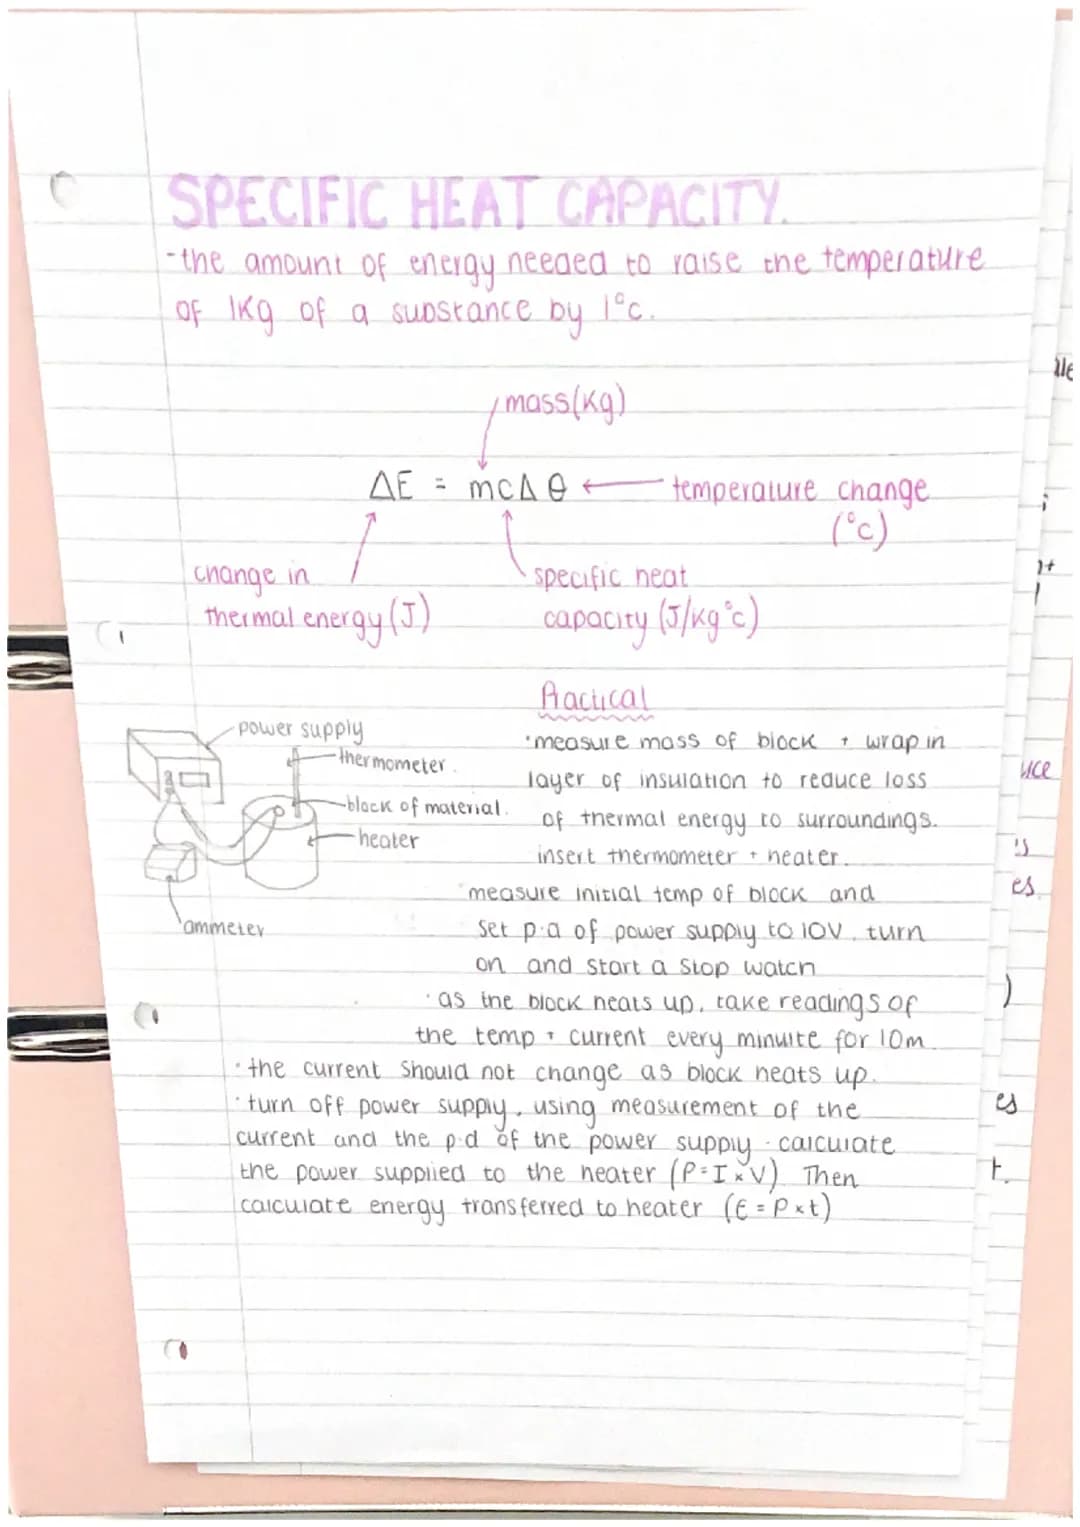 SPECIFIC HEAT CAPACITY.
-the amount of energy needed to raise the temperature
of 1Kg of a substance by 1°c.
mass(kg)
ΔE = mcΔθ
temperature change
(°c)
change in
thermal energy (J)
specific heat
capacity (J/kg°c)
Practical
power supply
thermometer.
block of material.
heater
ammeter
•measure mass of block + wrap in
layer of insulation to reduce loss
of thermal energy to surroundings.
insert thermometer + heater.
•measure initial temp of block and
set p.d of power supply to 10V. turn
on and start a stop watch
•as the block heats up, take readings of
the temp + current every minuite for 10m.
•the current should not change as block heats up.
•turn off power supply, using measurement of the
current and the p.d of the power supply - calculate
the power supplied to the heater (P=I×V). Then
calculate energy transferred to heater (E=P×t)
uce
es
es
t.